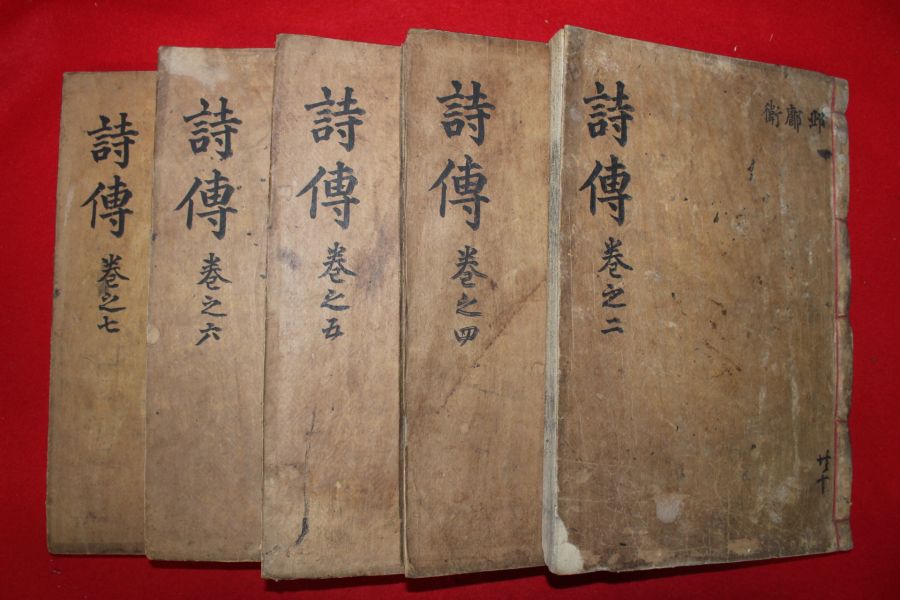 邶鄘衛
詩傳 卷之二
共十
詩傳 卷之四
詩傳 卷之五
詩傳 卷之六
詩傳 卷之七